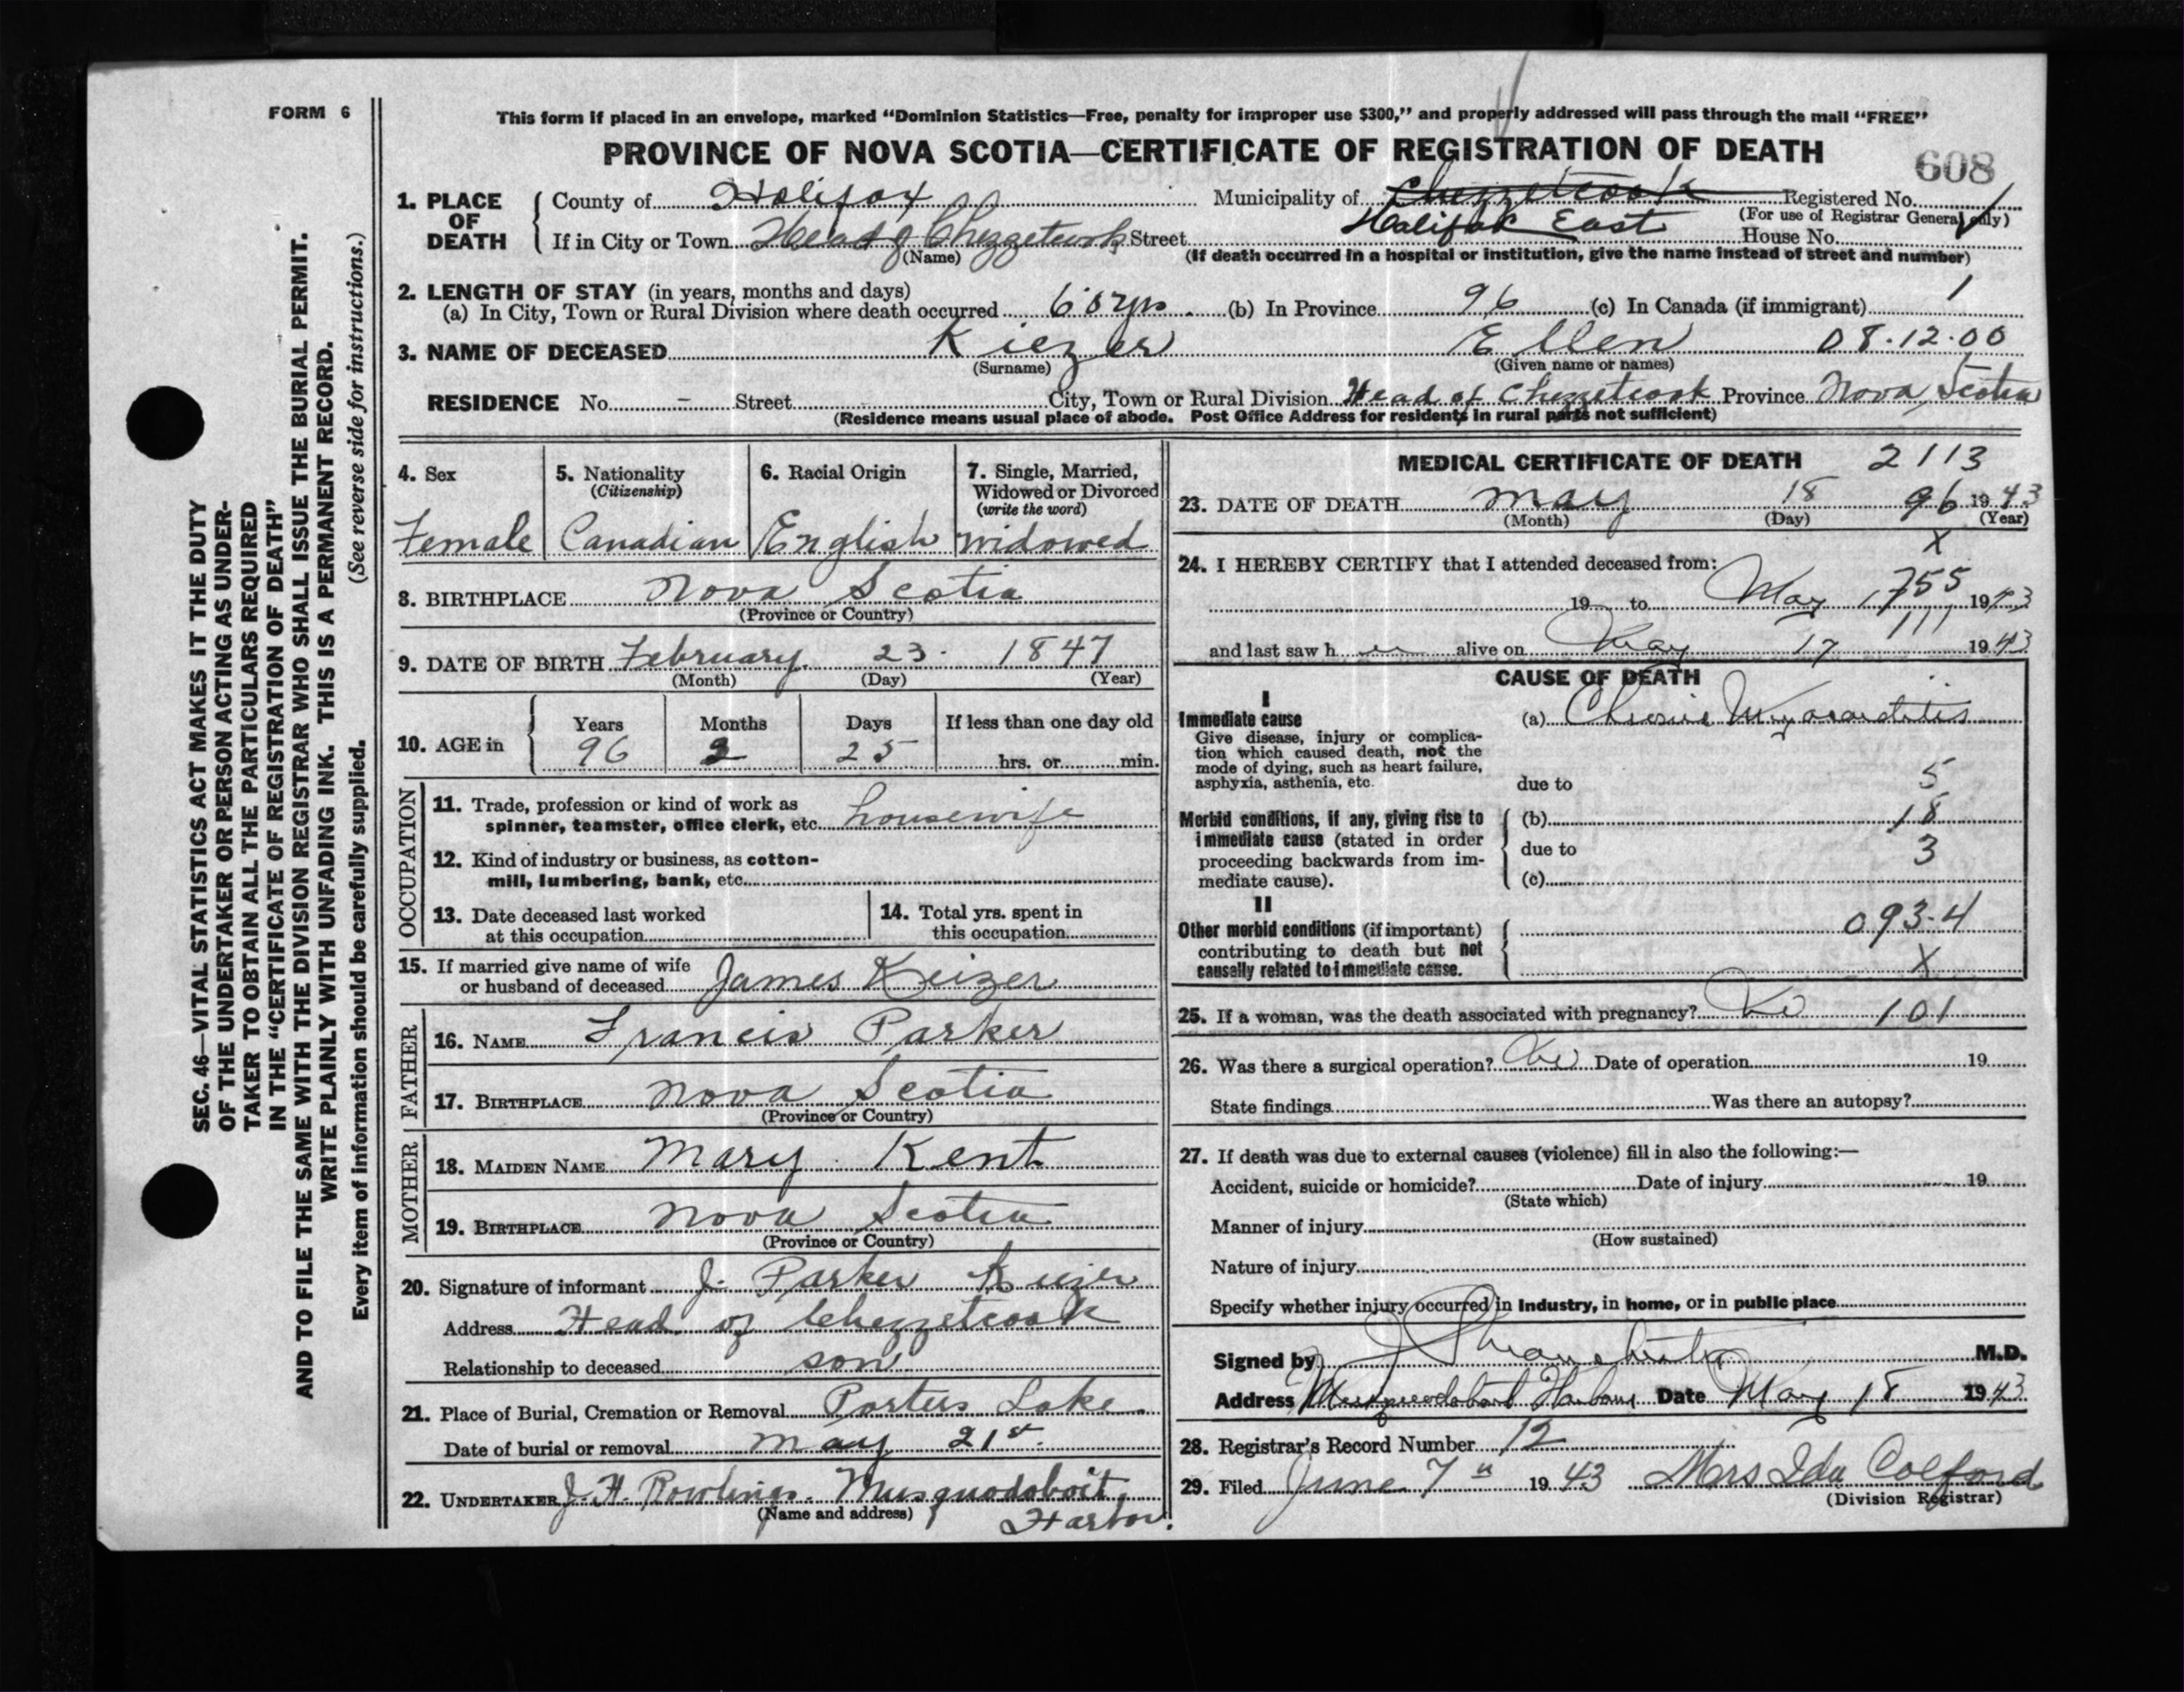 FORM 6
This form if placed in an envelope, marked “Dominion Statistics—Free, penalty for improper use $300,” and properly addressed will pass through the mail “FREE”
PROVINCE OF NOVA SCOTIA—CERTIFICATE OF REGISTRATION OF DEATH
608
1. PLACE OF DEATH
County of Halifax Municipality of Chezzetcook Registered No.
(For use of Registrar General only)
If in City or Town Head of Chezzetcook Street Halifax East House No.
(Name) (If death occurred in a hospital or institution, give the name instead of street and number)
2. LENGTH OF STAY (in years, months and days)
(a) In City, Town or Rural Division where death occurred 60 yrs. (b) In Province 96 (c) In Canada (if immigrant) 1
3. NAME OF DECEASED Kiezer Ellen 08.12.00
(Surname) (Given name or names)
RESIDENCE No. - Street City, Town or Rural Division Head of Chezzetcook Province Nova Scotia
(Residence means usual place of abode. Post Office Address for residents in rural parts not sufficient)
4. Sex
Female
5. Nationality
(Citizenship)
Canadian
6. Racial Origin
English
7. Single, Married,
Widowed or Divorced
(write the word)
widowed
8. BIRTHPLACE Nova Scotia
(Province or Country)
9. DATE OF BIRTH February 23 1847
(Month) (Day) (Year)
10. AGE in
Years Months Days If less than one day old
96 2 25 hrs. or min.
OCCUPATION
11. Trade, profession or kind of work as
spinner, teamster, office clerk, etc. housewife
12. Kind of industry or business, as cotton-
mill, lumbering, bank, etc.
13. Date deceased last worked
at this occupation
14. Total yrs. spent in
this occupation
15. If married give name of wife
or husband of deceased James Keizer
FATHER
16. NAME Francis Parker
17. BIRTHPLACE Nova Scotia
(Province or Country)
MOTHER
18. MAIDEN NAME Mary Kent
19. BIRTHPLACE Nova Scotia
(Province or Country)
20. Signature of informant J. Parker Keizer
Address Head of Chezzetcook
Relationship to deceased son
21. Place of Burial, Cremation or Removal Porters Lake.
Date of burial or removal May 21st.
22. UNDERTAKER J. H. Rowlings. Musquodoboit
(Name and address) Harbor.
MEDICAL CERTIFICATE OF DEATH 2113
23. DATE OF DEATH May 18 96 1943
(Month) (Day) (Year)
X
24. I HEREBY CERTIFY that I attended deceased from:
755
19 to May 17 1943
111
and last saw her alive on May 17 1943
CAUSE OF DEATH
I
Immediate cause
Give disease, injury or complica-
tion which caused death, not the
mode of dying, such as heart failure,
asphyxia, asthenia, etc.
(a) Chronic Myocarditis
due to 5
Morbid conditions, if any, giving rise to
immediate cause (stated in order
proceeding backwards from im-
mediate cause).
(b) 18
due to 3
(c)
II
Other morbid conditions (if important)
contributing to death but not
causally related to immediate cause.
093-4
X
25. If a woman, was the death associated with pregnancy? No 101
26. Was there a surgical operation? No Date of operation 19
State findings Was there an autopsy?
27. If death was due to external causes (violence) fill in also the following:—
Accident, suicide or homicide? Date of injury 19
(State which)
Manner of injury
(How sustained)
Nature of injury
Specify whether injury occurred in Industry, in home, or in public place
Signed by M.D.
Address Musquodoboit Harbour Date May 18 1943
28. Registrar's Record Number 12
29. Filed June 7th 1943 Mrs Ida Colford
(Division Registrar)
SEC. 46—VITAL STATISTICS ACT MAKES IT THE DUTY
OF THE UNDERTAKER OR PERSON ACTING AS UNDER-
TAKER TO OBTAIN ALL THE PARTICULARS REQUIRED
IN THE “CERTIFICATE OF REGISTRATION OF DEATH”
AND TO FILE THE SAME WITH THE DIVISION REGISTRAR WHO SHALL ISSUE THE BURIAL PERMIT.
WRITE PLAINLY WITH UNFADING INK. THIS IS A PERMANENT RECORD.
Every item of information should be carefully supplied. (See reverse side for instructions.)